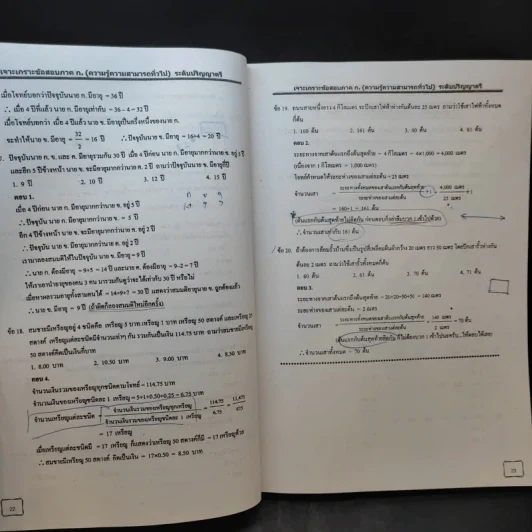 เจาะเกราะข้อสอบภาค ก. (ความรู้ความสามารถทั่วไป) ระดับปริญญาตรี
เมื่อโจทย์บอกว่าปัจจุบันนาย ก. มีอายุ = 36 ปี
∴ เมื่อ 4 ปีที่แล้ว นาย ก. มีอายุเท่ากับ = 36 - 4 = 32 ปี
เมื่อโจทย์บอกว่า เมื่อ 4 ปีแล้ว นาย ข. มีอายุเป็นครึ่งหนึ่งของนาย ก.
จะทำให้นาย ข. มีอายุ = 32/2 = 16 ปี ∴ ปัจจุบันนาย ข. มีอายุ = 16+4 = 20 ปี
ปัจจุบันนาย ก. ข. และ ค. มีอายุรวมกัน 30 ปี เมื่อ 4 ปีก่อน นาย ก. มีอายุมากกว่านาย ข. อยู่ 5 ปี
และอีก 5 ปีข้างหน้า นาย ข. จะมีอายุมากกว่านาย ค. 2 ปี ถามว่าปัจจุบันนาย ข. มีอายุกี่ปี
1. 9 ปี 2. 10 ปี 3. 12 ปี 4. 15 ปี
ตอบ 1.
เมื่อ 4 ปีก่อน นาย ก. มีอายุมากกว่านาย ข. อยู่ 5 ปี
∴ ปัจจุบัน นาย ก. มีอายุมากกว่านาย ข. = 5 ปี
อีก 5 ปีข้างหน้า นาย ข. จะมีอายุมากกว่านาย ค. อยู่ 2 ปี
∴ ปัจจุบัน นาย ข. มีอายุมากกว่านาย ค. อยู่ 2 ปี
เราลองสมมติให้ปัจจุบัน นาย ข. มีอายุ = 9 ปี
∴ นาย ก. ต้องมีอายุ = 9+5 = 14 ปี และนาย ค. ต้องมีอายุ = 9-2 = 7 ปี
ให้เราเอาอายุของคน 3 คน มารวมกันดูว่าจะได้เท่ากับ 30 ปี หรือไม่
∴ นาย ข. มีอายุ = 9 ปี
ข้อ 18. สมชายมีเหรียญอยู่ 4 ชนิดคือ เหรียญ 5 บาท เหรียญ 1 บาท เหรียญ 50 สตางค์ และเหรียญ 25
สตางค์ เหรียญแต่ละชนิดมีจำนวนเท่าๆ กัน รวมกันเป็นเงิน 114.75 บาท ถามว่าสมชายมีเหรียญ
50 สตางค์คิดเป็นเงินกี่บาท
1. 8.00 บาท 2. 10.50 บาท 3. 9.00 บาท 4. 8.50 บาท
ตอบ 4.
จำนวนเงินรวมของเหรียญทุกชนิดตามโจทย์ = 114.75 บาท
จำนวนเงินรวมของเหรียญชนิดละ 1 เหรียญ = 5+1+0.50+0.25 = 6.75 บาท
จำนวนเหรียญแต่ละชนิด = จำนวนเงินรวมของเหรียญทุกเหรียญ/จำนวนเงินรวมของเหรียญชนิดละ 1 เหรียญ = 114.75/6.75 = 11,475/675
= 17 เหรียญ
เมื่อเหรียญแต่ละชนิดมี = 17 เหรียญ ก็แสดงว่าเหรียญ 50 สตางค์ก็มี = 17 เหรียญด้วย
∴ สมชายมีเหรียญ 50 สตางค์ คิดเป็นเงิน = 17×0.50 = 8.50 บาท
22
เจาะเกราะข้อสอบภาค ก. (ความรู้ความสามารถทั่วไป) ระดับปริญญาตรี
ข้อ 19. ถนนสายหนึ่งยาว 4 กิโลเมตร จะปักเสาไฟฟ้าห่างกันต้นละ 25 เมตร ถามว่าใช้เสาไฟฟ้าทั้งหมด
กี่ต้น
1. 160 ต้น 2. 161 ต้น 3. 80 ต้น 4. 81 ต้น
ตอบ 2.
ระยะทางจากเสาต้นแรกถึงต้นสุดท้าย = 4 กิโลเมตร = 4×1,000 = 4,000 เมตร
(เนื่องจาก 1 กิโลเมตร = 1,000 เมตร)
โจทย์กำหนดให้ระยะห่างของเสาแต่ละต้น = 25 เมตร
จำนวนเสา = ระยะทางทั้งหมดของเสาต้นแรกกับต้นสุดท้าย/ระยะห่างของเสาแต่ละต้น +1 = 4,000 เมตร/25 เมตร +1
= 160+1 = 161 ต้น
∴ จำนวนเสาเท่ากับ 161 ต้น
1. 60 ต้น 2. 61 ต้น 3. 70 ต้น 4. 71 ต้น
ตอบ 3.
ระยะทางของเสาต้นแรกถึงต้นสุดท้าย = 20+20+50+50 = 140 เมตร
ระยะห่างของเสาแต่ละต้น = 2 เมตร
จำนวนเสา = ระยะทางทั้งหมดของเสาต้นแรกกับต้นสุดท้าย/ระยะห่างของเสาแต่ละต้น = 140 เมตร/2 เมตร = 70 ต้น
∴ จำนวนเสาทั้งหมด = 70 ต้น
23